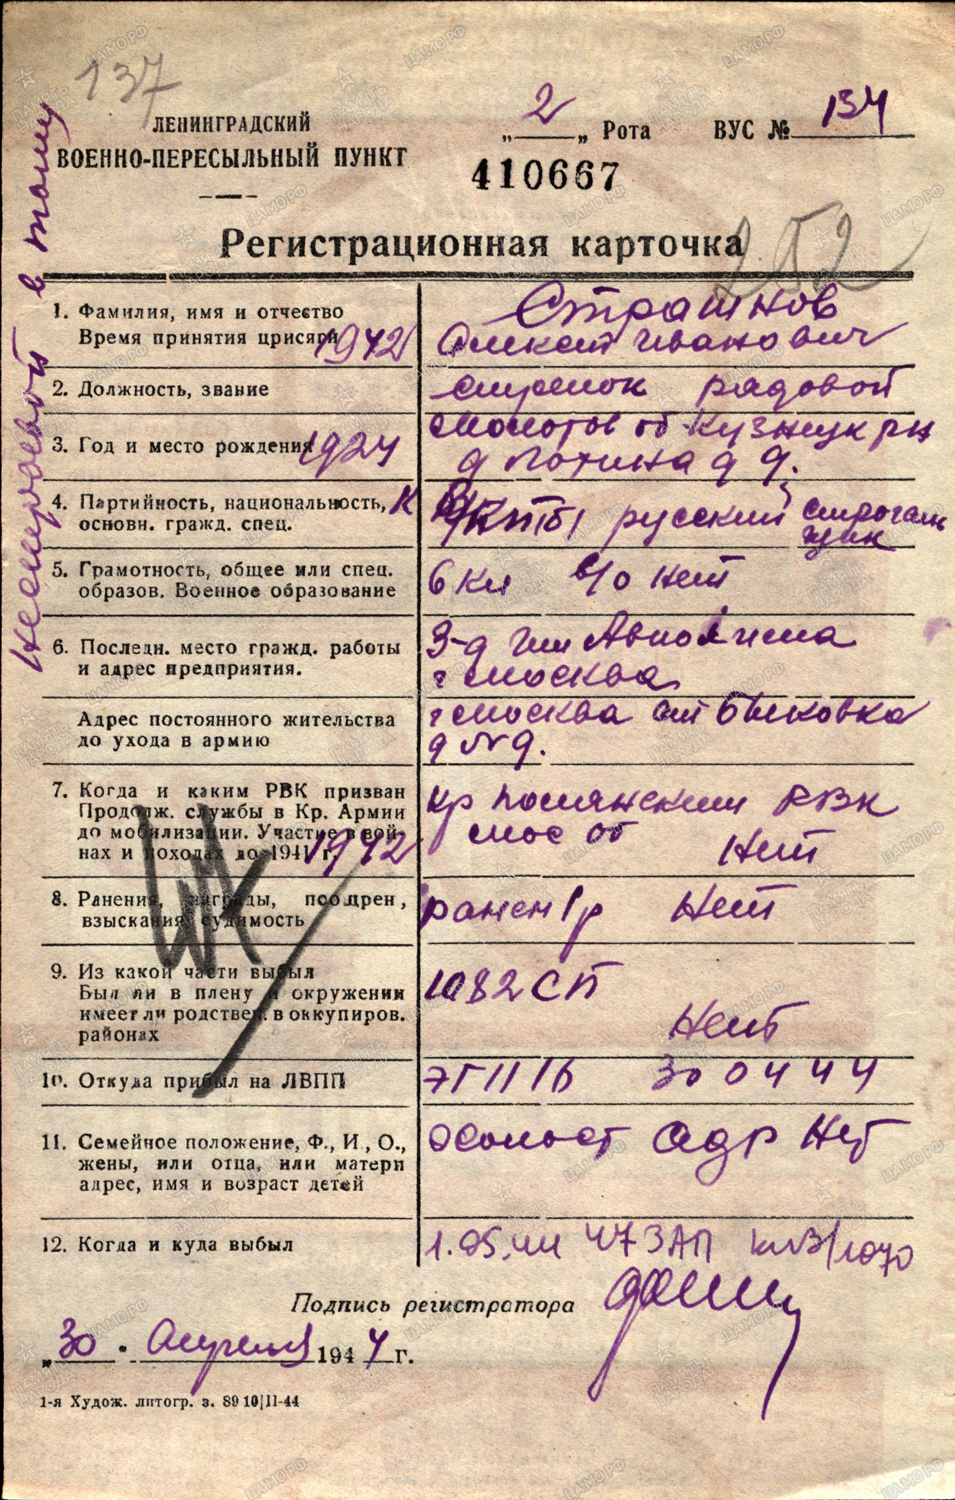 137
ЛЕНИНГРАДСКИЙ
ВОЕННО-ПЕРЕСЫЛЬНЫЙ ПУНКТ
„ 2 „ Рота ВУС № 134
410667
252
Регистрационная карточка
1. Фамилия, имя и отчество Страшнов
Время принятия присяги 1942 Иванович
2. Должность, звание стрелок рядовой
3. Год и место рождения 1924 Молотов об Кузнецк рн
д
4. Партийность, национальность,
основн. гражд. спец. русский
5. Грамотность, общее или спец.
образов. Военное образование 6 кл в/о нет
6. Последн. место гражд. работы З-д им Авиахима
и адрес предприятия. г Москва
Адрес постоянного жительства г Москва
до ухода в армию д № 9.
7. Когда и каким РВК призван
Продолж. службы в Кр. Армии РВК
до мобилизации. Участие в вой- об
нах и походах до 1941 г. 1942 Нет
8. Ранения, награды, поощрен,
взыскания, судимость ранен 1 р Нет
9. Из какой части выбыл
Был ли в плену и окружении 1082 СП
имеет ли родствен. в оккупиров.
районах Нет
10. Откуда прибыл на ЛВПП ЭГ 1116 30 04 44
11. Семейное положение, Ф., И., О., Холост адр Нет
жены, или отца, или матери
адрес, имя и возраст детей
12. Когда и куда выбыл 1.05.44 47 ЗАП
Подпись регистратора
„30 . Апреля 1944 г.
1-я Худож. литогр. з. 89 10|II-44